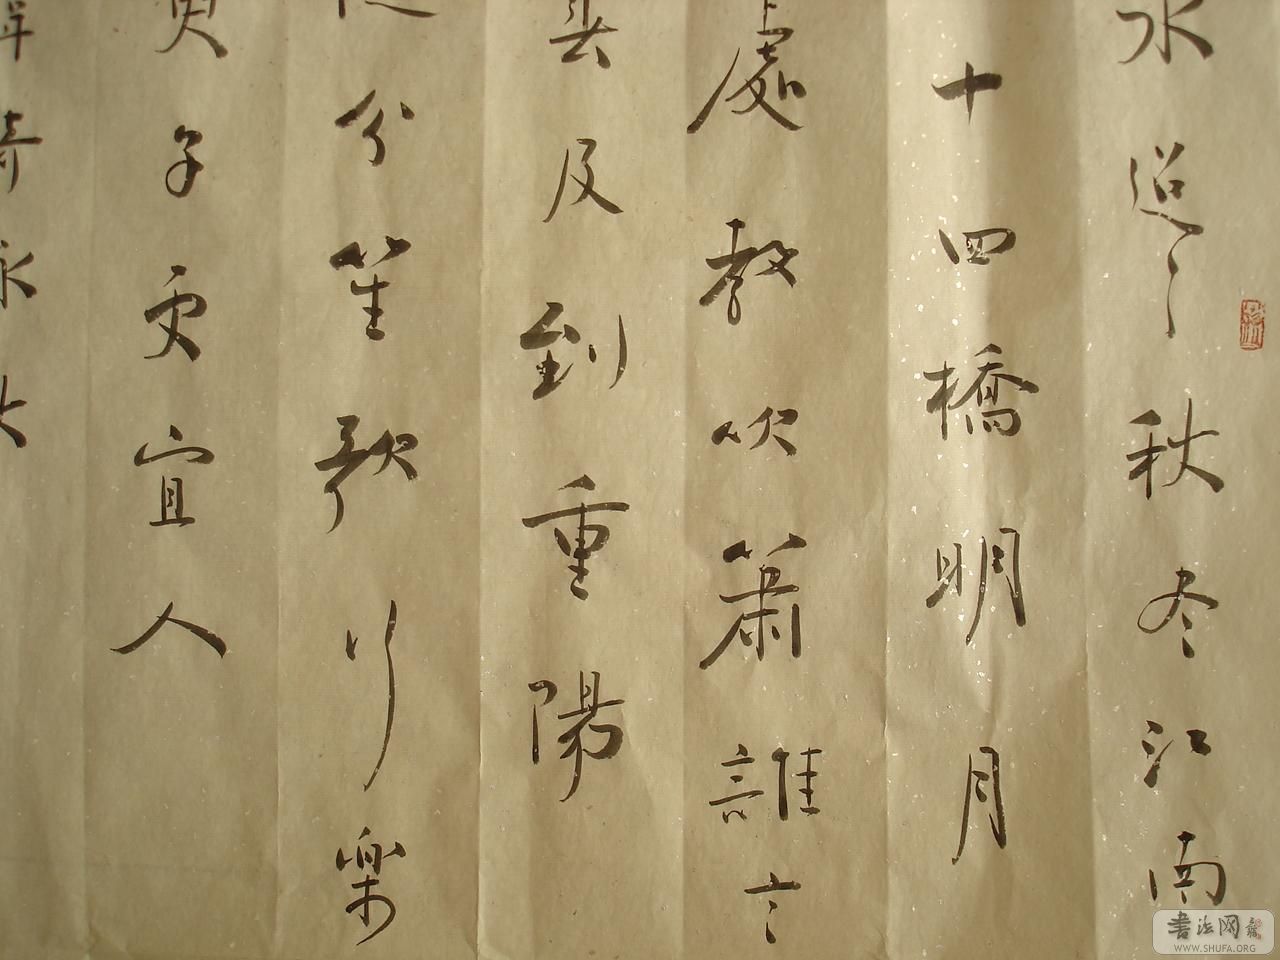 水迢迢秋尽江南
十四橋明月
處教吹簫誰言
及到重陽
分笙歌行樂
子更宜人
年
書法网
WWW.SHUFA.ORG